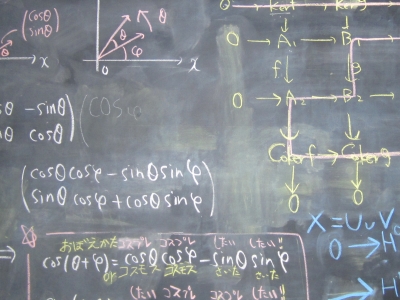 (cosθ
sinθ)
θ
φ
x
0
x
sθ -sinθ
θ cosθ) (cosφ
(cosθcosφ-sinθsinφ
sinθcosφ+cosθsinφ)
⇒
おぼえかた コスプレ コスプレ したい したい!!
cos(θ+φ)=cosθcosφ-sinθsinφ
or コスモス コスモス さいた さいた
したい コスプレ コスプレ したい!!
0 → Kerf → Kerg
0 → A₁ → B₁
f↓ ↓g
0 → A₂ → B₂
Cokerf → Cokerg
↓ ↓
0 0
X=U∪V
0 → H⁰
→ H¹